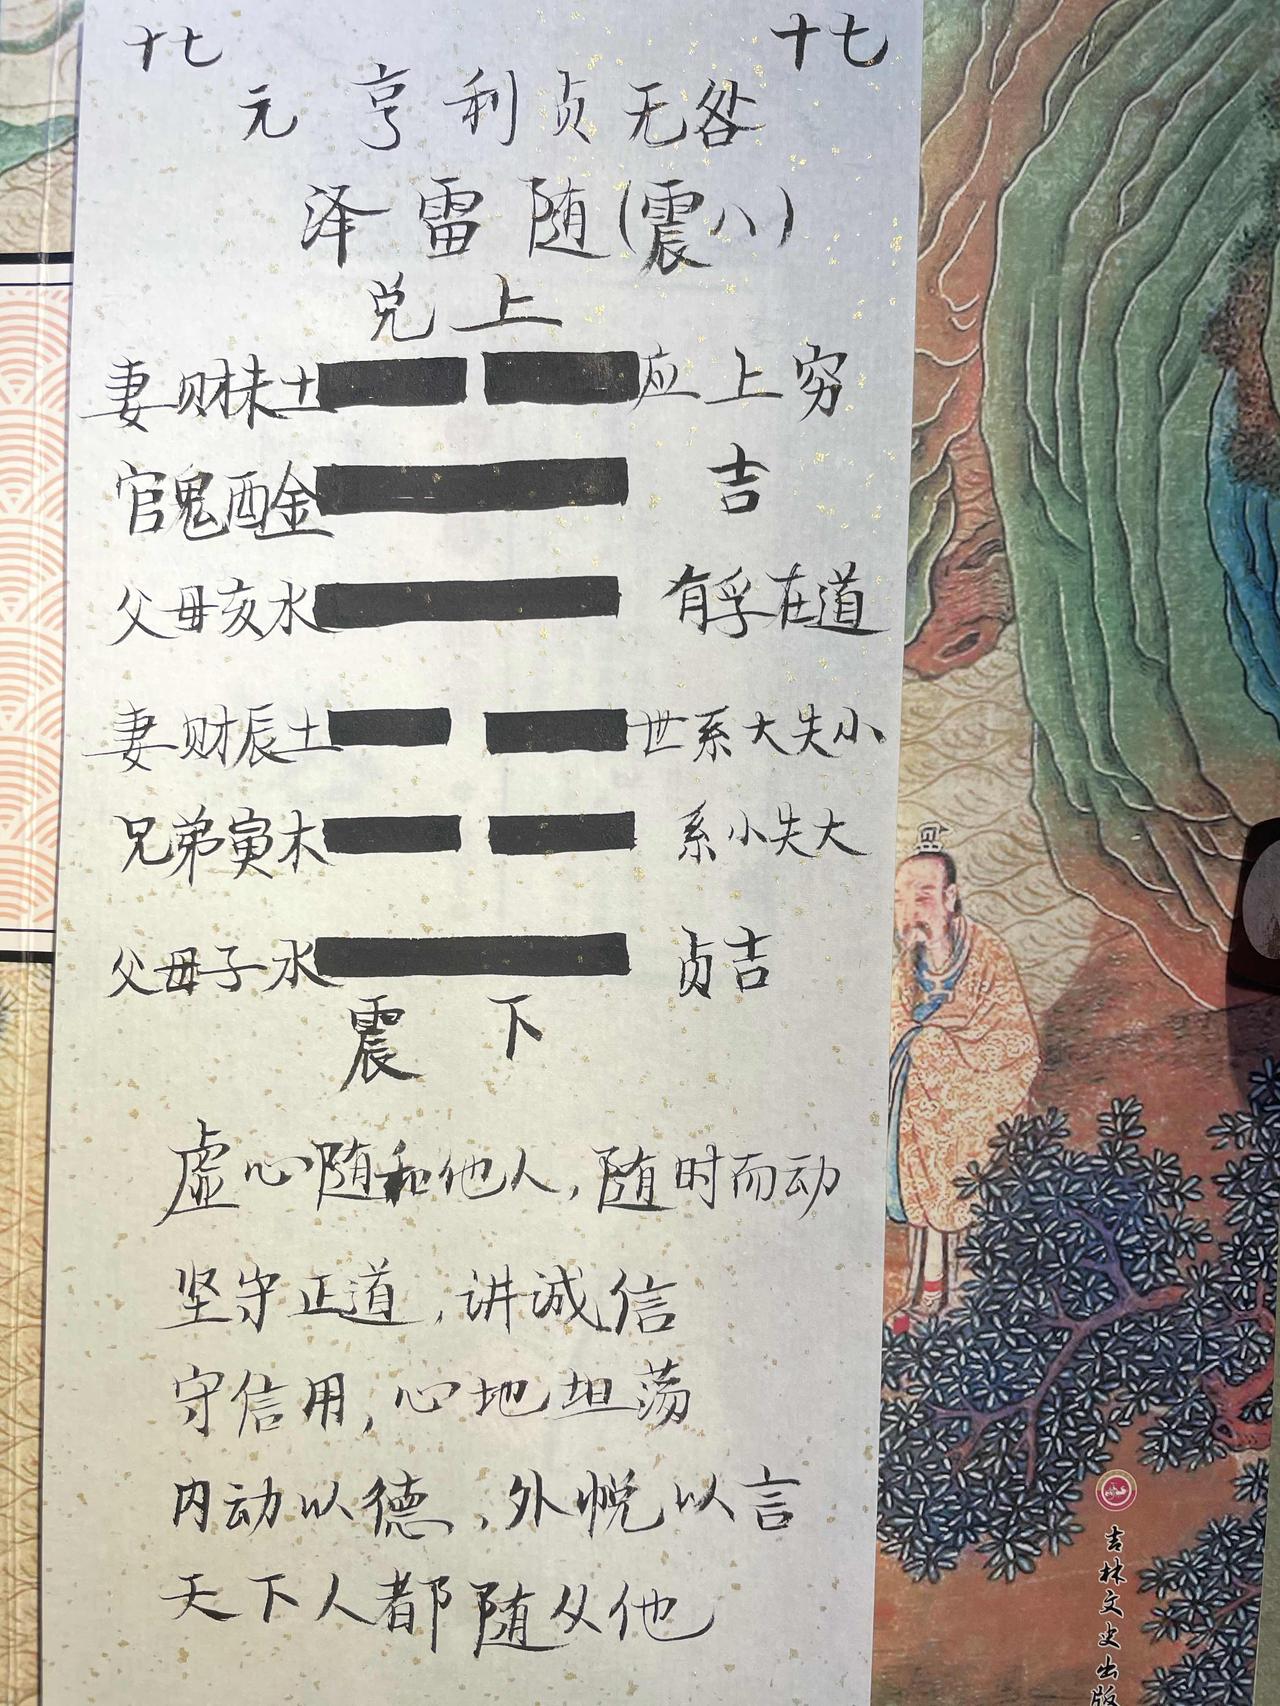 十七 十七
元亨利贞无咎
泽雷随(震八)
兑上
妻财未土 应上穷
官鬼酉金 吉
父母亥水 有孚在道
妻财辰土 世系大失小
兄弟寅木 系小失大
父母子水 贞吉
震下
虚心随和他人,随时而动
坚守正道,讲诚信
守信用,心地坦荡
内动以德,外悦以言
天下人都随从他
吉林文史出版